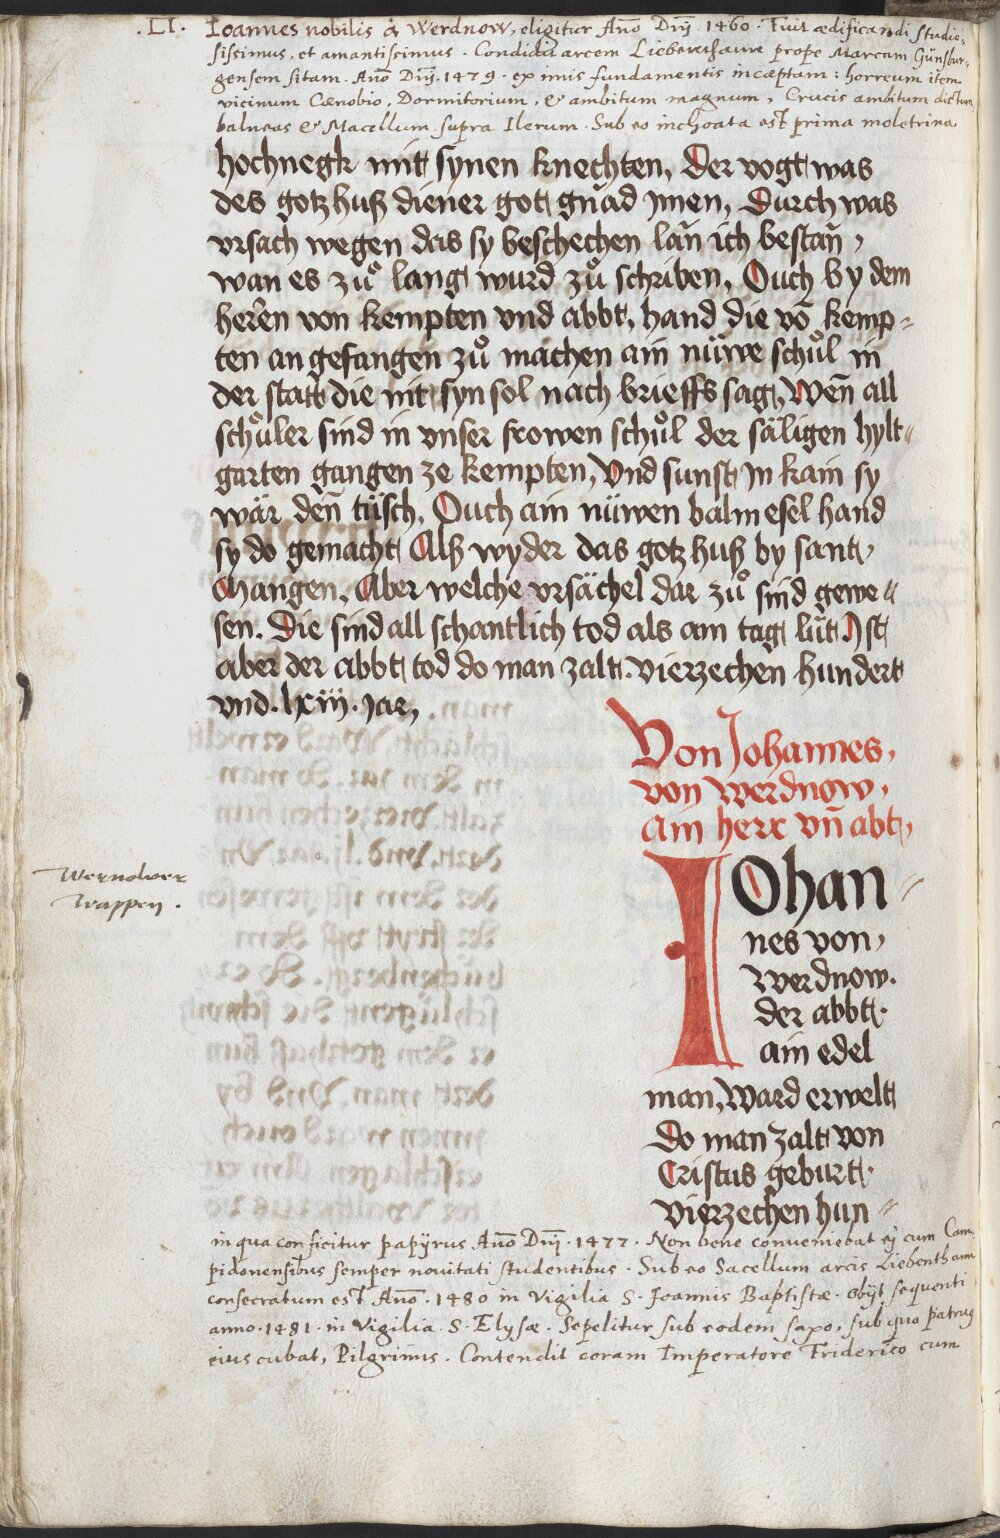 .LI. Ioannes nobilis à Werdnow, eligitur Año Dnj 1460. Fuit ædificandi studio-
sissimus, et amantissimus. Condidit arcem Liebenthann prope Marcam Günsbur,
gensem sitam. Año Dnj. 1479. ex imis fundamentis incæptam: horreum item
vicinum Cænobio, Dormitorium, & ambitum magnum, Crucis ambitum dictum,
balneas & Macellum supra Ilerum. Sub eo inchoata est prima moletrina
hochnegk mit synen knechten, Der vogt was
des gotzhuß diener got gnad jmen, Durch was
vrsach wegen das sy beschechen lan̄ ich bestan̄,
wan es zuͦ lang wurd zuͦ schriben, Ouch by dem
heren von kempten vnd abbt, hand die vō kemp-
ten angefangen zuͦ machen ain nüwe schuͦl in
der statt die nit syn sol nach brieffs sag, Wen̄ all
schuͦler sind in vnser frowen schuͦl der säligen hylt-
garten gangen ze kempten, Vnd sunst jn kain sy
wär den̄ tüsch, Ouch ain nüwen balmesel hand
sy do gemacht Alß wyder das gotzhuß by sant
Mangen, Aber welche vrsächel dar zuͦ sind gewe-
sen. Die sind all schantlich tod als am tag lüt Jst
aber der abbt tod do man zalt. vierzechen hundert
vnd. lxiij. jar,
Von Johannes,
von Werdnow,
ain herr vn̄ abt,
IOhan-
nes von,
Werdnow.
der abbt.
ain edel
man, Ward erwelt
Do man zalt von
Cristus geburt.
vierzechen hun-
Wernolver
Wappen.
in qua conficitur papÿrus Año Dnj. 1477. Non bene conveniebat ej cum Cam,
pidonensibus semper novitati studentibus. Sub eo Sacellum arcis Liebenthann
consecratum est Año. 1480 in Vigilia S. Joannis Baptistæ. obijt sequenti
anno. 1481. in Vigilia. S. Elysæ. Sepelitur sub eodem saxo, sub quo patruq
eius cubat, Pilgrimus. Contendit coram Imperatore Friderico cum